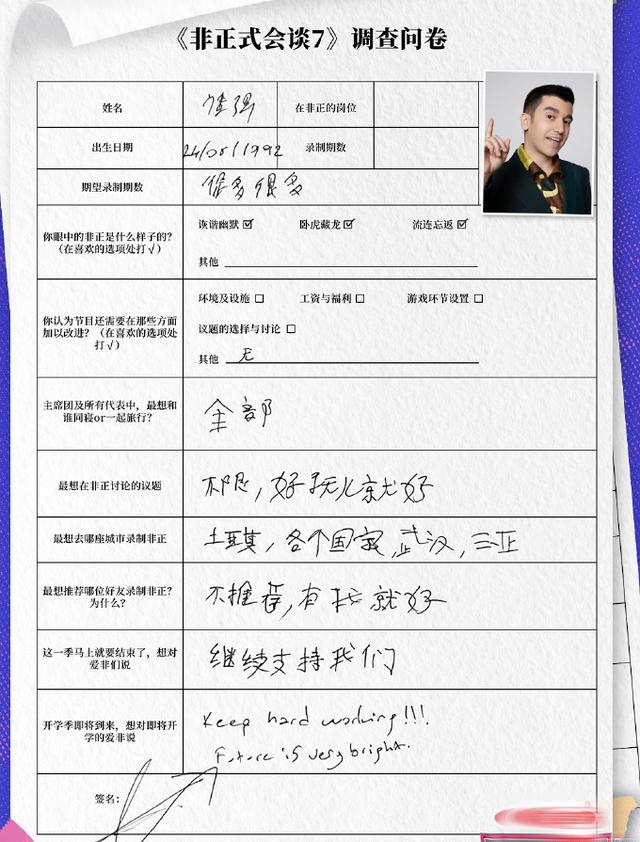 《非正式会谈7》调查问卷
姓名
在非正的岗位
出生日期 24/05/1992 录制期数
期望录制期数 很多很多
你眼中的非正是什么样子的？
（在喜欢的选项处打√）
诙谐幽默☑ 卧虎藏龙☑ 流连忘返☑
其他
你认为节目还需要在那些方面
加以改进？（在喜欢的选项处
打√）
环境及设施☐ 工资与福利☐ 游戏环节设置☐
议题的选择与讨论☐
其他 无
主席团及所有代表中，最想和
谁同寝or一起旅行？
全部
最想在非正讨论的议题 不限，好玩儿就好
最想去哪座城市录制非正 土耳其，各个国家，武汉，三亚
最想推荐哪位好友录制非正？
为什么？
不推荐，有我就好
这一季马上就要结束了，想对
爱非们说
继续支持我们
开学季即将到来，想对即将开
学的爱非说
Keep hard working!!!
Future is very bright.
签名：